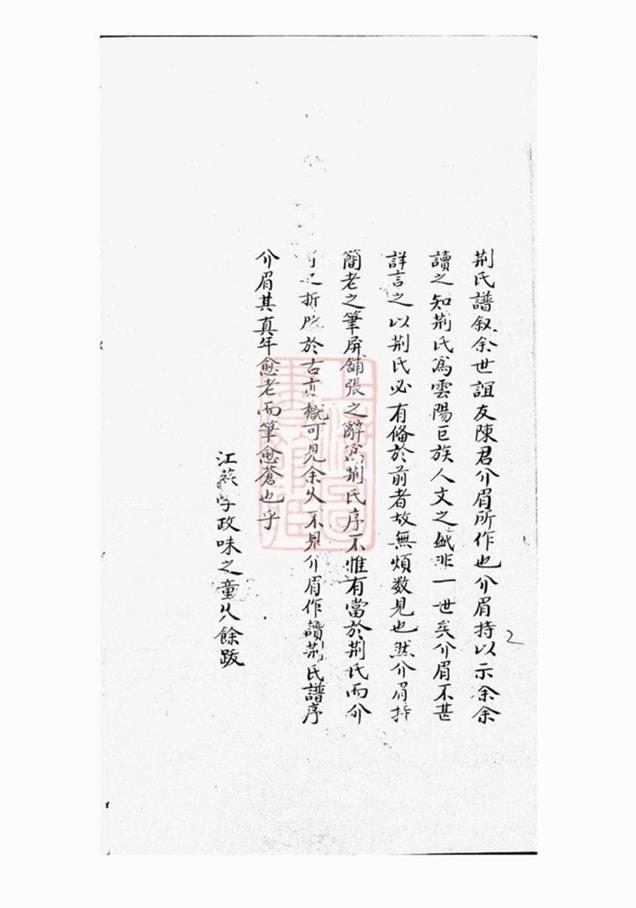 荆氏譜叙余世誼友陳君介眉所作也介眉持以示余余
讀之知荆氏爲雲陽巨族人文之盛非一世矣介眉不甚
詳言之以荆氏必有俻於前者故無煩数見也然介眉
簡老之筆屏鋪張之辭爲荆氏序不惟有當於荆氏而介
於古亦概可見余久不見介眉作讀荆氏譜序
介眉其真年愈老而筆愈蒼也乎
江蘇學政味之童餘跋